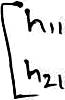 h11
h21